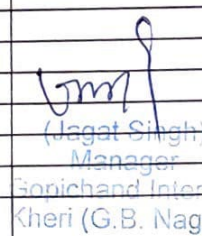 (Jagat Singh)
Manager
Gopichand Inter
Kheri (G.B. Nag